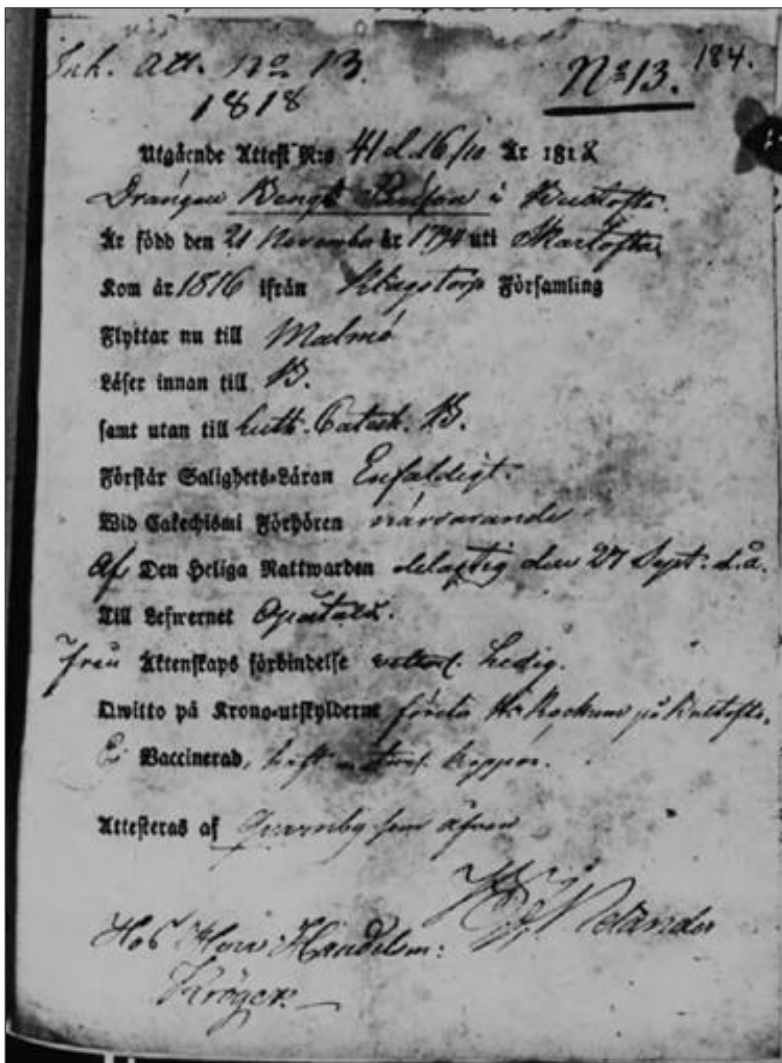 Ink. Att. No 13.
1818
No 13. 184.
Utgående Attest N:o 41 d. 16/10 År 1818
Drängen Bengt i Kustofta
Är född den 21 November år 1794 uti Skartofta
Kom år 1816 ifrån Klagstorp Församling
Flyttar nu till Malmö
Läser innan till B.
samt utan till Luth. Catech. B.
Förstår Salighets-Läran Enfaldigt.
Wid Catechismi Förhören närvarande
Af Den Heliga Nattwarden delaftig den 27 Sept. d. å.
Till Lefwernet Opåtald.
från Äktenskaps förbindelse Ledig.
Qwitto på Krono-utskylderne på
Ej Vaccinerad, haft koppor.
Attesteras af Qvarnby som äfven
Hos Herr Handelsm:
Kröger.